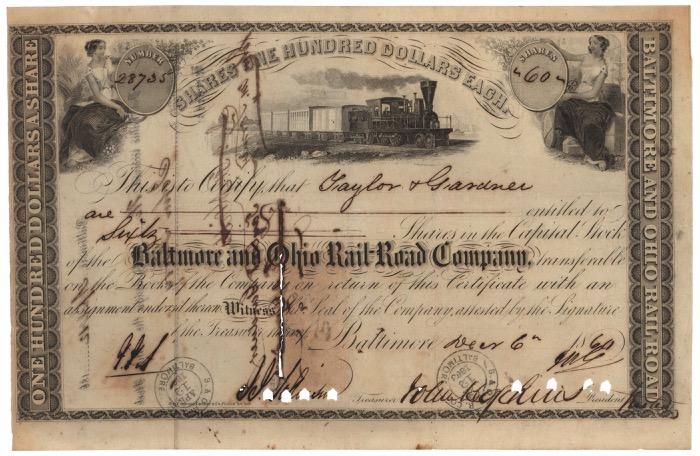 NUMBER
28735
SHARES ONE HUNDRED DOLLARS EACH.
SHARES
60
ONE HUNDRED DOLLARS A SHARE
BALTIMORE AND OHIO RAIL-ROAD
This is to Certify, that Taylor & Gardner
are entitled to
Sixty Shares in the Capital Stock
of the Baltimore and Ohio Rail-Road Company, transferable
on the Books of the Company on return of this Certificate with an
assignment endorsed thereon Witness the Seal of the Company, attested by the Signature
of the Treasurer
Baltimore Decr 6th 18
Treasurer
President
B & O
BALTIMORE
BALTIMORE